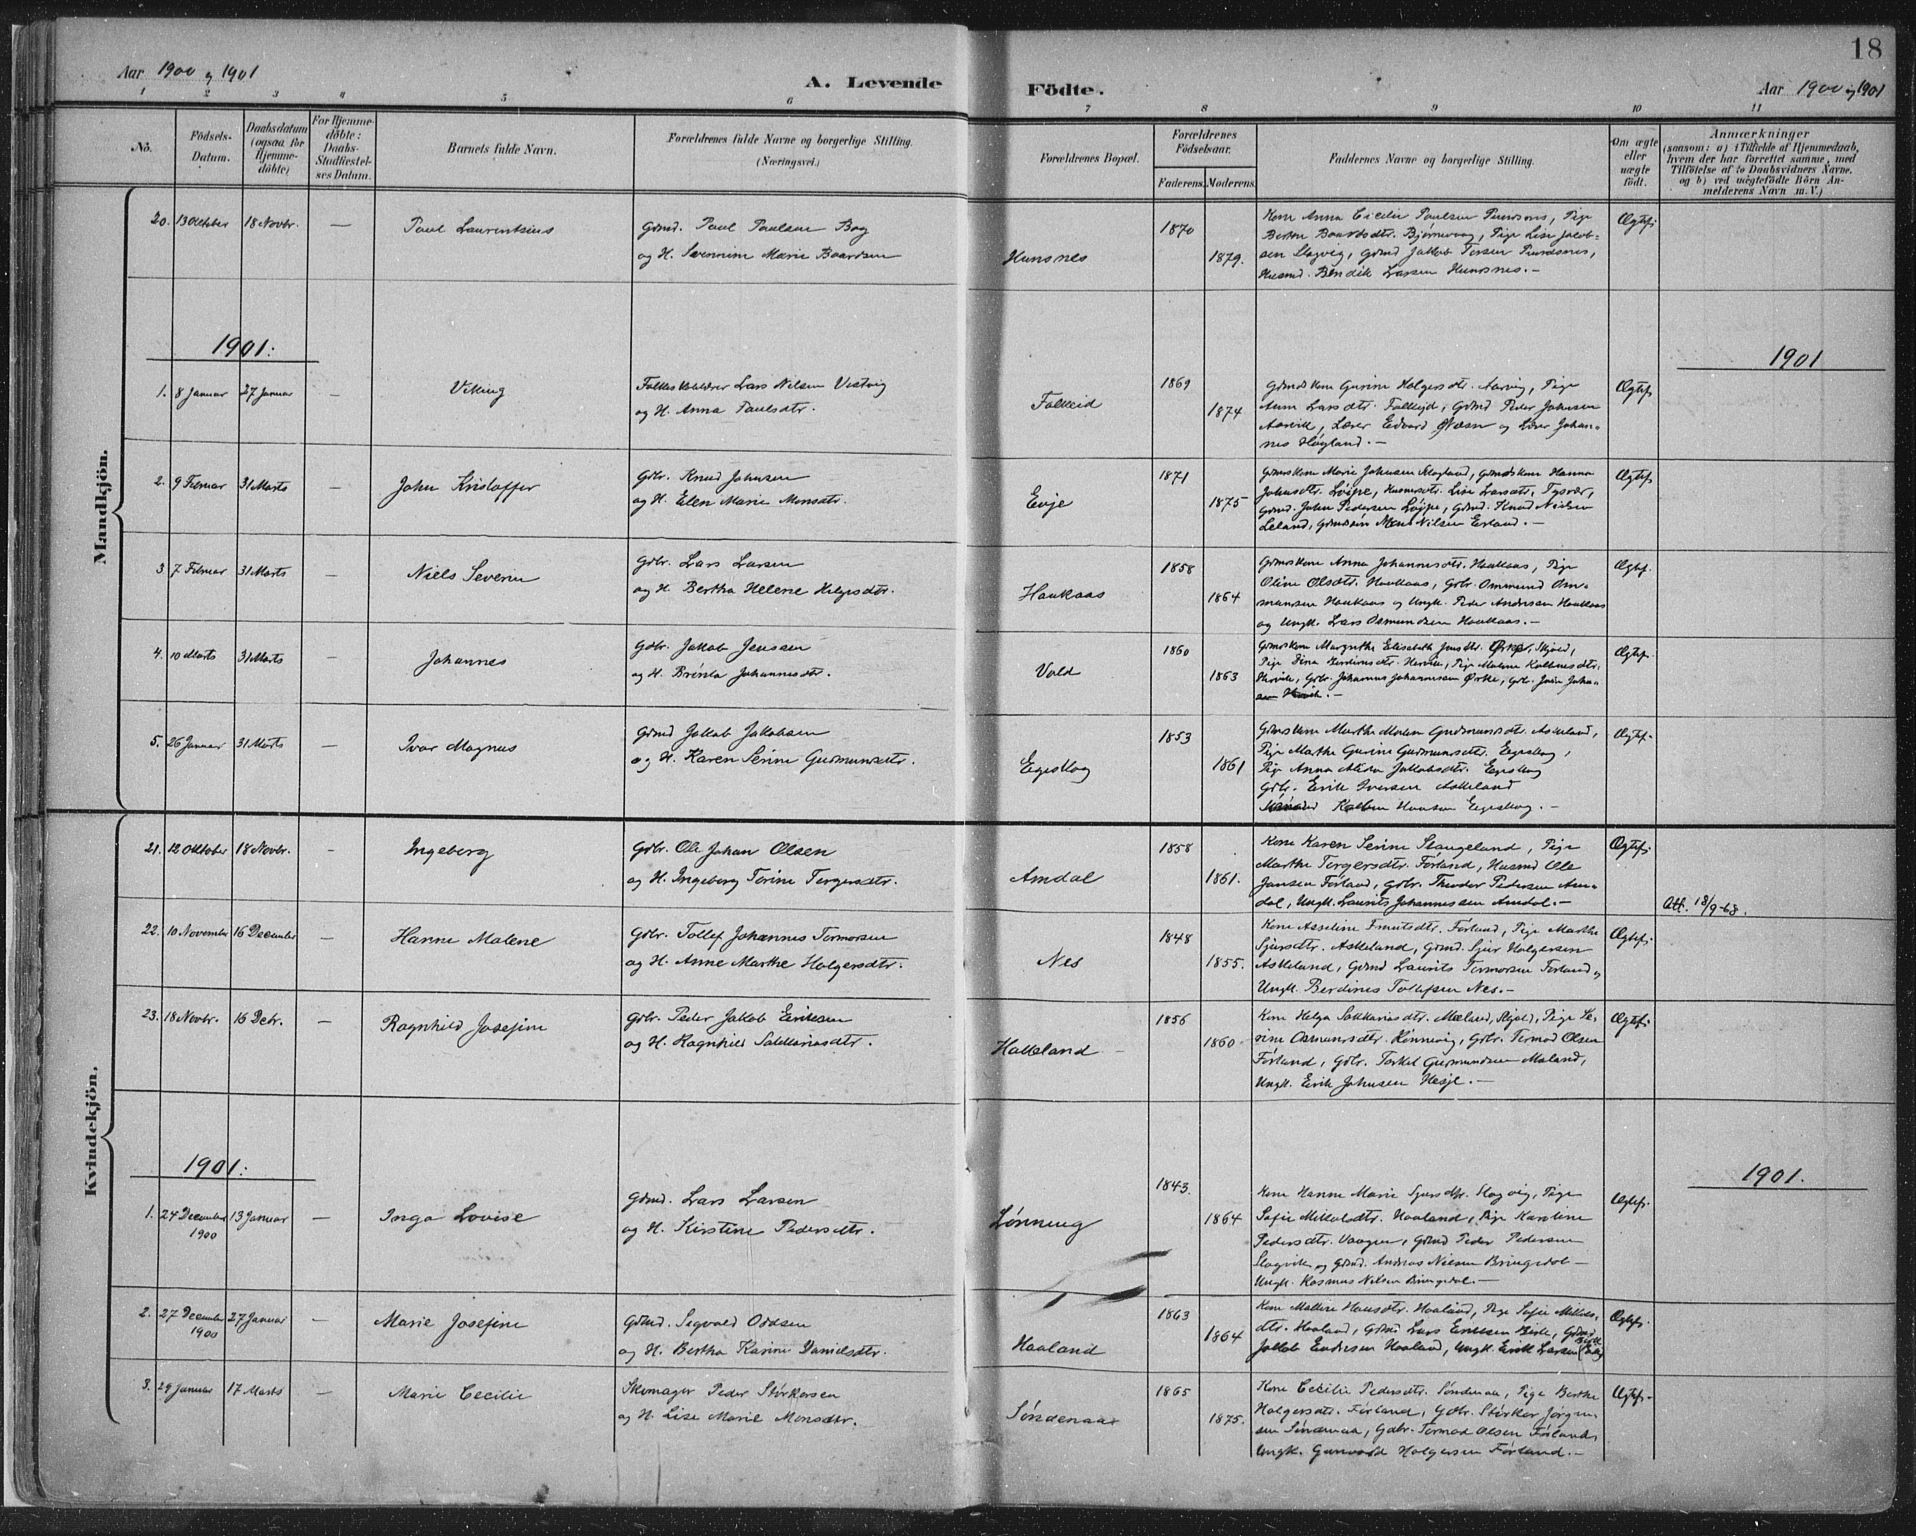 18
Aar 1900 og 1901
A. Levende Födte.
Aar 1900 og 1901
1 2 3 4 5 6 7 8 9 10 11
No.
Födsels-Datum.
Daabsdatum (ogsaa for Hjemme-döbte)
For Hjemme-döbte: Daabs-Stadfæstel-ses Datum.
Barnets fulde Navn.
Forældrenes fulde Navne og borgerlige Stilling. (Næringsvei.)
Forældrenes Bopæl.
Forældrenes Födselsaar.
Faderens. Moderens.
Faddernes Navne og borgerlige Stilling.
Om ægte eller uægte födt.
Anmærkninger
(saasom: a) i Tilfælde af Hjemmedaab, hvem der har forrettet samme, med Tilföielse af to Daabsvidners Navne. og b) ved uægtefödte Börn An-melderens Navn m. V.)
Mandkjön.
20. 13 Oktober 18 Novbr. — Paul Laurentsius
Gdmd. Paul Paulsen Bog
og H. Svennine Marie Baardsen
Hunsnes 1870 1879.
Kone Anna Cecilie Paulsen
Berthe Baardsdtr. Bjørnevaag, Pige Lise Jakob-
sen Slagvig, Gdmd Jakob
Husmd. Bendik Larsen Hunsnes. —
Ægtef.
1901:
1901
1. 8 Januar 27 Januar — Viking
Folkeskolelærer Lars Nilsen Vestvig
og H. Anna Paulsdtr.
Falkeid 1869 1874
Gdmdskone Gurine Holgersdtr. Aarvig, Pige
Larsdtr. Falkeid, Gdmd Peder Johnsen
Aarvik, Lærer Edvard Næsn og Lærer Johan-
nes Høgland. —
Ægtef.
2. 9 Februar 31 Marts — John Kristoffer
Gdbr. Knud Johnsen
og H. Elen Marie Monsdtr.
Evje 1871 1875
Gdmdskone Marie Johnsen Gdmdskone Hanna
Johnsdtr. Løipe, Husmdsdtr. Lise Larsdtr. Tysvær,
Gdmd. John Pedersen Løipe, Gdmd. Knud Nielsen
Leland, Gdmdssøn Mons Nilsen Erland. —
Ægtef.
3 7 Februar 31 Marts — Niels Severin
Gdbr. Lars Larsen
og H. Bertha Helene Helgesdtr.
Haukaas 1858 1864
Gdmdskone Anna Johannesdtr. Haukaas, Pige
Oline Olsdtr. Haukaas, Gdbr. Ommund Om-
mundsen Haukaas og Ungk. Peder Andersen Haukaas
og Ungk. Lars Osmundsen Haukaas. —
Ægtef.
4. 10 Marts 31 Marts — Johannes
Gdbr. Jakob Jensen
og H. Brønla Johannesdtr.
Vold 1860 1863
Gdmdskone Margrethe Elisabeth Jensdtr. Ørke, Skjold,
Pige Pige Malene Kolbensdtr.
Gdbr. Johannes Johannessen Ørke, Gdbr. John Johan-
Ægtef.
5. 26 Januar 31 Marts — Ivar Magnus
Gdmd Jakob Jakobsen
og H. Karen Serine Gudmundsdtr.
Egeskog 1853 1861
Gdmdskone Marthe Malene Gudmundsdtr. Askeland,
Pige Marthe Gurine Gudmundsdtr. Egeskog,
Pige Anna Jakobsdtr. Egeskog
Gdbr. Erik Iversen Askeland
Hansen Egeskog. —
Ægtef.
Kvindekjön.
21. 12 Oktober 18 Novbr. — Ingeborg
Gdbr. Ole Johan Olsen
og H. Ingeborg Torine Torgersdtr.
Amdal 1858 1861.
Kone Karen Serine Stangeland, Pige
Marthe Torgersdtr. Førland, Husmd Ole
Jansen Førland, Gdbr. Theodor Pedersen Am-
dal, Ungk. Laurits Johannessen Amdal. —
Ægtef.
Att. 18/9-68.
22. 10 November 16 December — Hanne Malene
Gdbr. Tollef Johannes Tormodsen
og H. Anne Marthe Holgersdtr.
Nes 1848 1855.
Kone Asseline Knutsdtr. Førland, Pige Marthe
Sjursdtr. Askeland, Gdmd Sjur Holgersen
Askeland, Gdmd Laurits Tormodsen Førland og
Ungk. Berdines Tollefsen Nes. —
Ægtef.
23. 18 Novbr. 16 Decbr. — Ragnhild Josefine
Gdbr. Peder Jakob Eriksen
og H. Ragnhild Sakkariasdtr.
Hakkeland 1856 1860
Kone Helga Sakkariasdtr. Mæland, Skjold, Pige Se-
rine Osmundsdtr. Hønnevig, Gdbr. Tormod Olsen
Førland, Gdbr. Torkel Gudmundsen Maland,
Ungk. Erik Johnsen Hesje. —
Ægtef.
1901:
1901.
1. 24 December 1900 13 Januar — Inga Lovise
Gdmd. Lars Larsen
og H. Kirstine Pedersdtr.
Lønning 1843. 1864
Kone Hanne Marie Sjursdtr. Slagvig, Pige
Sofie Mikalsdtr. Haaland, Pige Karoline
Pedersdtr. Vaagen, Gdmd Peder Pedersen
Slagvik og Gdmd. Andreas Nielsen Bringedal —
Ungk. Rasmus Nilsen Bringedal. —
Ægtef.
2. 27 December 1900 27 Januar — Marie Josefine
Gdmd. Sigvald Oddsen
og H. Bertha Karine Danielsdtr.
Haaland 1863 1864
Kone Malline Hansdtr. Haaland, Pige Sofie Mikkels-
dtr. Haaland, Gdmd Lars Eriksen Birke, Gdmd
Jakob Endresen Haaland, Ungk. Erik Larsen
Ægtef.
3. 29 Januar 17 Marts — Marie Cecilie
Skomager Peder Størkersen
og H. Lise Marie Monsdtr.
Søndenaa 1865 1875.
Kone Cecilie Pedersdtr. Søndenaa, Pige Berthe
Holgersdtr. Førland, Gdbr. Størker Jørgen-
sen Søndenaa, Gdbr. Tormod Olsen Førland,
Ungk. Gunvald Holgersen Førland. —
Ægtef.